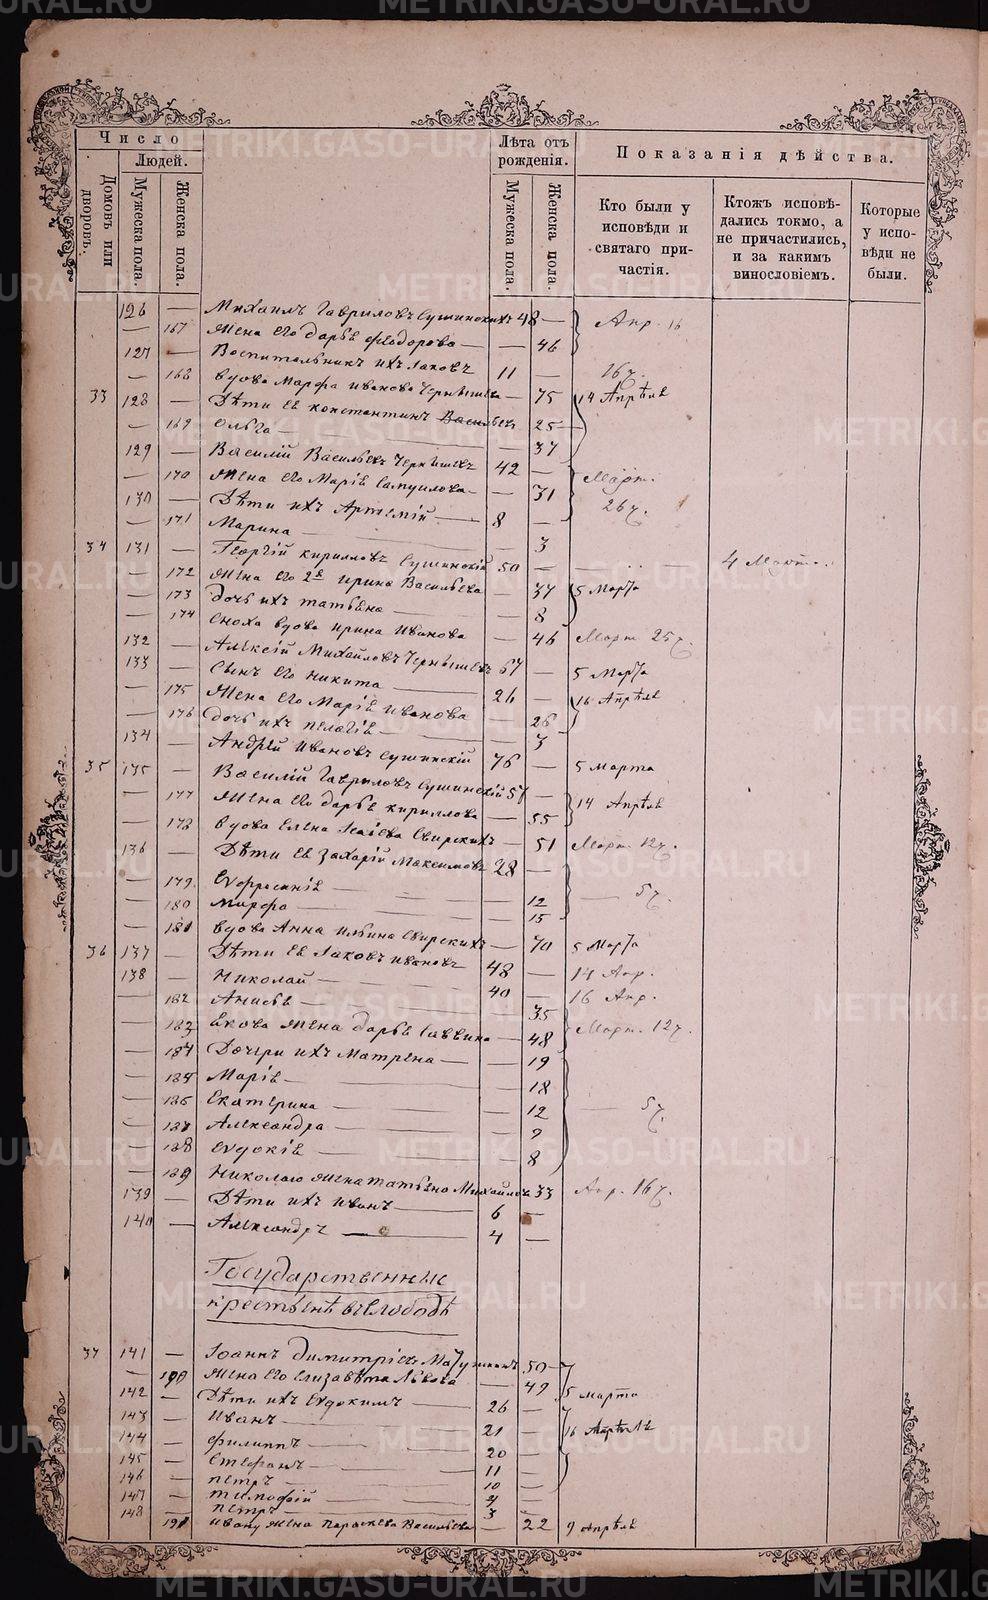 Число
Людей.
Домовъ или дворовъ.
Мужеска пола.
Женска пола.
Лѣта отъ рожденія.
Мужеска пола.
Женска пола.
Показанія дѣйства.
Кто были у исповѣди и святаго причастія.
Ктожъ исповѣдались токмо, а не причастились, и за какимъ винословіемъ.
Которые у исповѣди не были.
126 — Михаилъ Гавриловъ Сушинскихъ 48 — Апр. 16
— 167 Жена его Дарья Феодорова — — 46
127 — Воспитальникъ ихъ Іаковъ 11 — 16ч.
— 168 Вдова Марфа Иванова Чернышева — 75 14 Апрѣля
33 128 — Дѣти ея Константинъ 25 —
— 169 Ольга — — 37
129 — Василій Васильевъ Чернышевъ 42 — Март.
— 170 Жена его Марія Самуилова — — 31 26ч.
130 — Дѣти ихъ Артемій — 8 —
— 171 Марина — — 3
34 131 — Георгій Кирилловъ Сушинскій 50 — — 4 Марта
— 172 Жена его 2я Ирина Васильева — 37 5 Марта
— 173 Дочь ихъ Татьяна — — 8
— 174 Сноха вдова Ирина Иванова — 46 Март 25ч.
132 — Алексій Михайловъ Чернышевъ 67 — 5 Марта
133 — Сынъ его Никита — 26 — 16 Апрѣля
— 175 Жена его Марія Иванова — 26
— 176 Дочь ихъ Пелагія — — 3
134 — Андрей Ивановъ Сушинскій 76 — 5 Марта
35 135 — Василій Гавриловъ Сушинскій 57 — 14 Апрѣля
— 177 Жена его Дарья Кириллова — 55
— 178 Вдова Елена Исаіева Свирскихъ — 51 Март. 12ч.
136 — Дѣти ея Захарій Максимовъ 28 —
— 179 Евфросинія — — 12 — 5ч.
— 180 Марфа — — 15
— 181 Вдова Анна Ильина Свирскихъ — 70 5 Марта
36 137 — Дѣти ея Іаковъ Ивановъ 48 — 14 Апр.
138 — Николай — 40 — 16 Апр.
— 182 Анисья — — 35
— 183 Якова жена Дарья Саввина — 48 Март. 12ч.
— 184 Дочери ихъ Матрена — — 19
— 185 Марія — — 18
— 186 Екатерина — — 12 — 5ч.
— 187 Александра — — 9
— 188 Евдокія — — 8
— 189 Николаю жена Татьяна Михайлов. 33 Апр. 16ч.
139 — Дѣти ихъ Иванъ — 6 —
140 — Александръ — 4 —
Государственные
крестьяне въ слободѣ
37 141 — Іоаннъ Димитріевъ 50 —
— 190 Жена его Елизавета Львова — 49 5 Марта
142 — Дѣти ихъ Евдокимъ — 26 —
143 — Иванъ — 21 — 16 Апрѣля
144 — Филиппъ — 20 —
145 — Стефанъ — 11 —
146 — Петръ — 10 —
147 — Тимофей —
148 — Петръ — 3 —
191 Ивану жена Параскева Васильева — 22 9 Апрѣля
METRIKI.GASO-URAL.RU